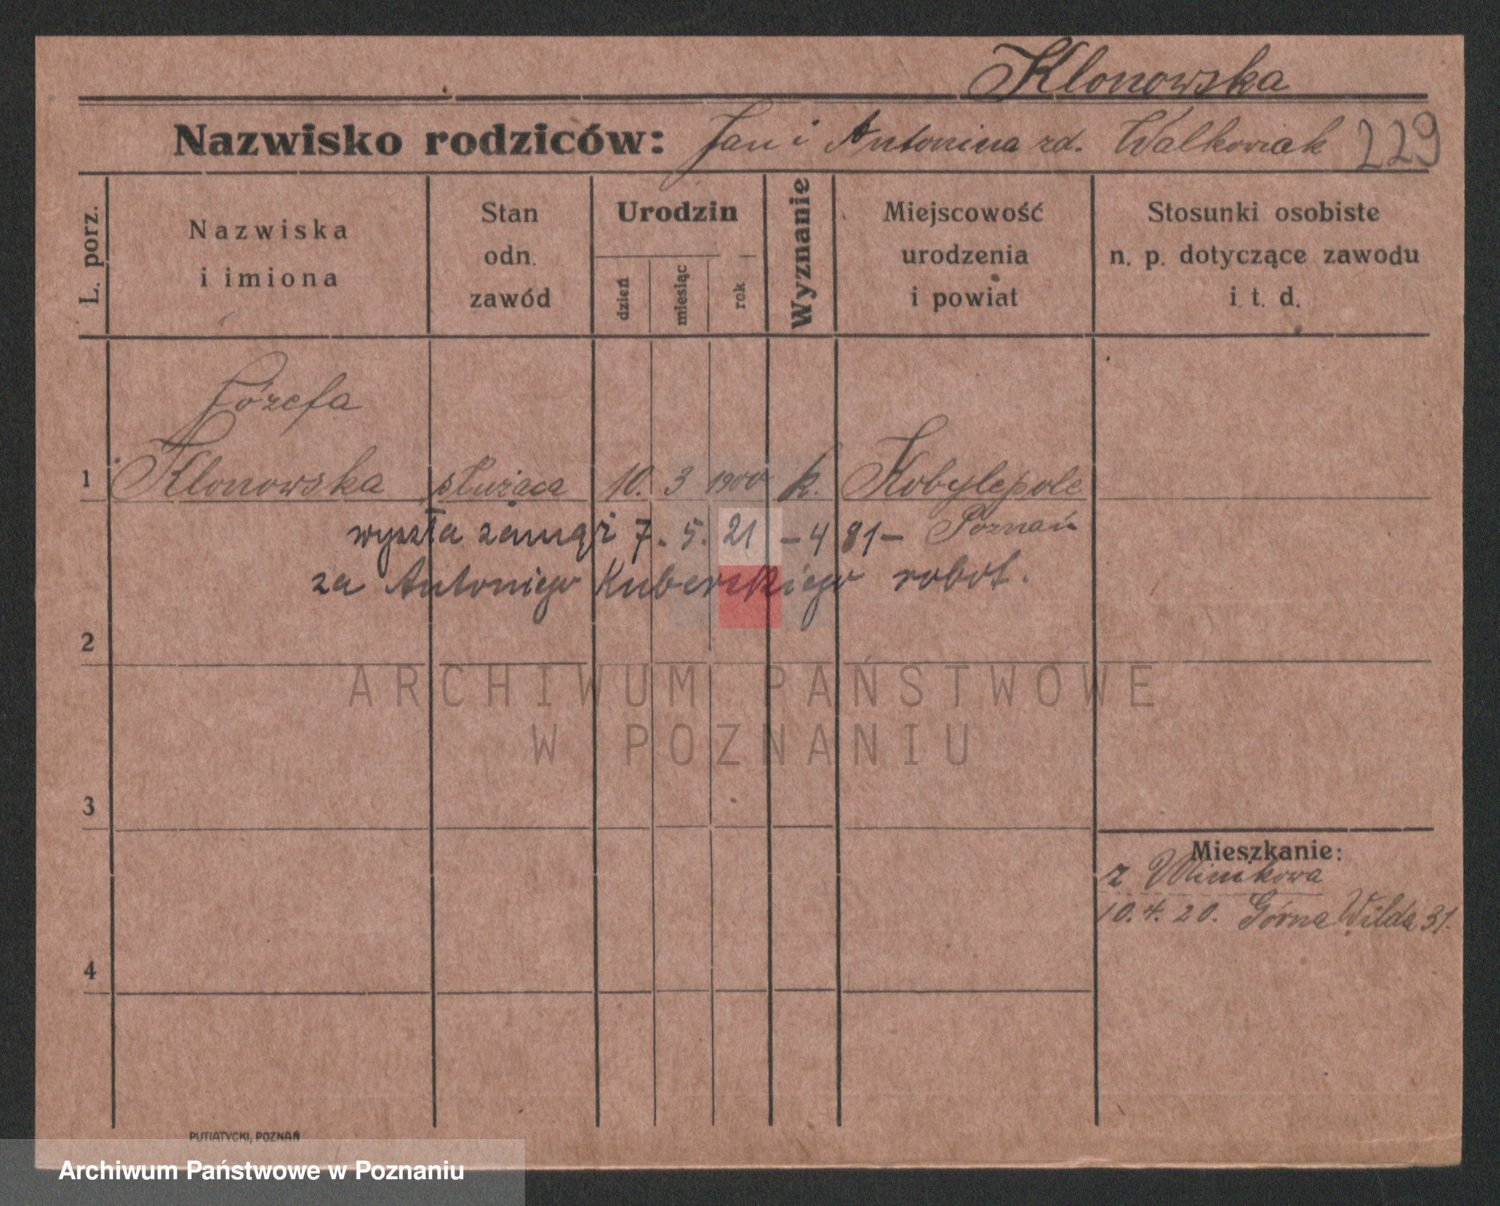 Klonowska
Nazwisko rodziców: Jan i Antonina rd. Walkowiak 229
L. porz.
Nazwiska
i imiona
Stan
odn.
zawód
Urodzin
dzień
miesiąc
rok
Wyznanie
Miejscowość
urodzenia
i powiat
Stosunki osobiste
n. p. dotyczące zawodu
i t. d.
Józefa
1 Klonowska służąca 10. 3 1900 k. Kobylepole
Poznań
wyszła zamąż 7. 5. 21 - 481 -
za Antoniego Kuberskiego robot.
2
ARCHIWUM PAŃSTWOWE
W POZNANIU
3
Mieszkanie:
z
10.4.20. Górna Wilda 31.
4
PUTIATYCKI, POZNAŃ
Archiwum Państwowe w Poznaniu